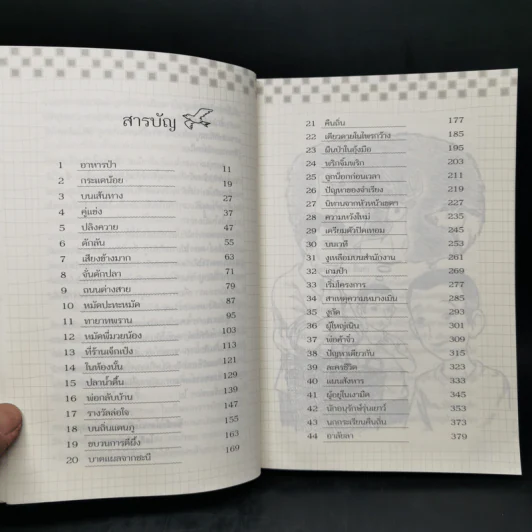 สารบัญ
1 อาหารป่า 11
2 กระแตน้อย 19
3 บนเส้นทาง 27
4 คู่แข่ง 37
5 ปลิงควาย 47
6 ดักลัน 55
7 เสียงช้างมาก 63
8 จั่นดักปลา 71
9 ถนนต่างสาย 79
10 หมัดปะทะหมัด 87
11 ทายาทพราน 95
12 หมัดพี่มวยน้อง 103
13 ที่ร้านเจ็กเป้ง 113
14 ในห้องนั้น 121
15 ปลาน้ำตื้น 129
16 พ่อกลับบ้าน 139
17 รางวัลล่อใจ 147
18 บนถิ่นแดนภู 155
19 ขบวนการตีผึ้ง 163
20 บาดแผลจากชะนี 169
21 คืนถิ่น 177
22 เดียวดายในไพรกว้าง 185
23 ผืนป่าในอุ้งมือ 195
24 พริกจิ้มพริก 203
25 ถูกน็อกก่อนเวลา 211
26 ปัญหาของจำเรียง 219
27 นิทานจากหัวหน้าเขตฯ 227
28 ความหวังใหม่ 235
29 เตรียมตัวปิดเทอม 245
30 บนเวที 253
31 งูเหลือมบนสำนักงาน 261
32 เกมป่า 269
33 เริ่มโครงการ 277
34 สาเหตุความหมางเมิน 285
35 งูกัด 293
36 ผู้ใหญ่เนิน 301
37 พ่อค้าชั่ว 309
38 ปัญหาเดียวกัน 315
39 ละครชีวิต 323
40 แผนสังหาร 333
41 ผู้อยู่ในเงามืด 345
42 นักอนุรักษ์รุ่นเยาว์ 353
43 นกกระเรียนคืนถิ่น 373
44 อาลัยลา 379